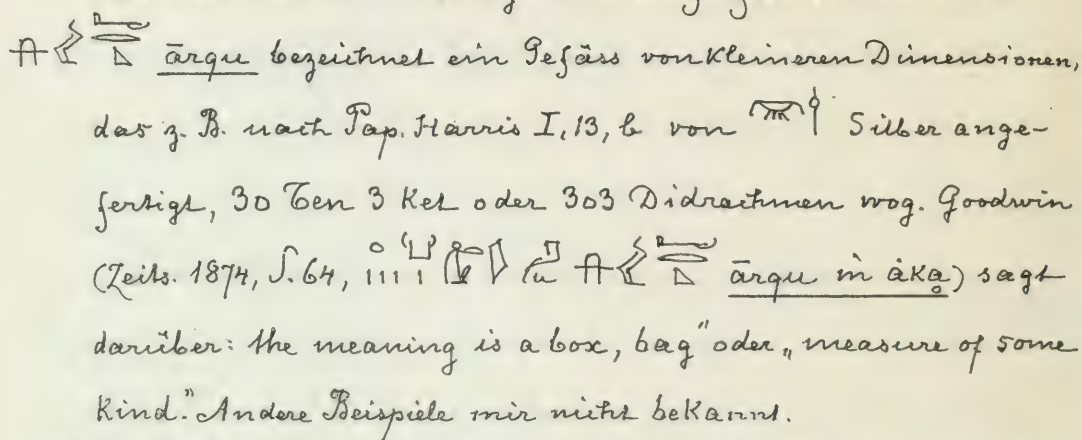 ārqu bezeichnet ein Gefäss von kleineren Dimensionen,
das z. B. nach Pap. Harris I, 13, b von Silber ange-
fertigt, 30 Ten 3 Ket oder 303 Didrachmen wog. Goodwin
(Zeits. 1874, S. 64, ārqu m àka) sagt
darüber: the meaning is a box, bag" oder „measure of some
kind." Andere Beispiele mir nicht bekannt.